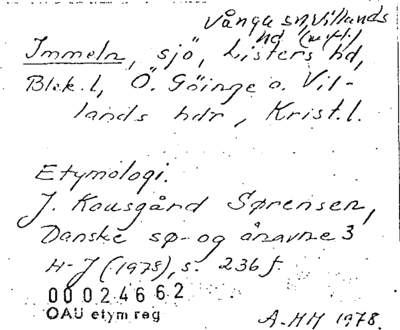 Vånga sn, Villands
hd
Immeln, sjö, Listers hd,
Blek. l, Ö. Göinge o. Vil-
lands hdr, Krist. l.
Etymologi.
J. Kousgård Sørensen,
Danske sø- og ånavne 3
H-J (1978), s. 236 f.
0002466 2
OAU etym reg
A-HH 1978.